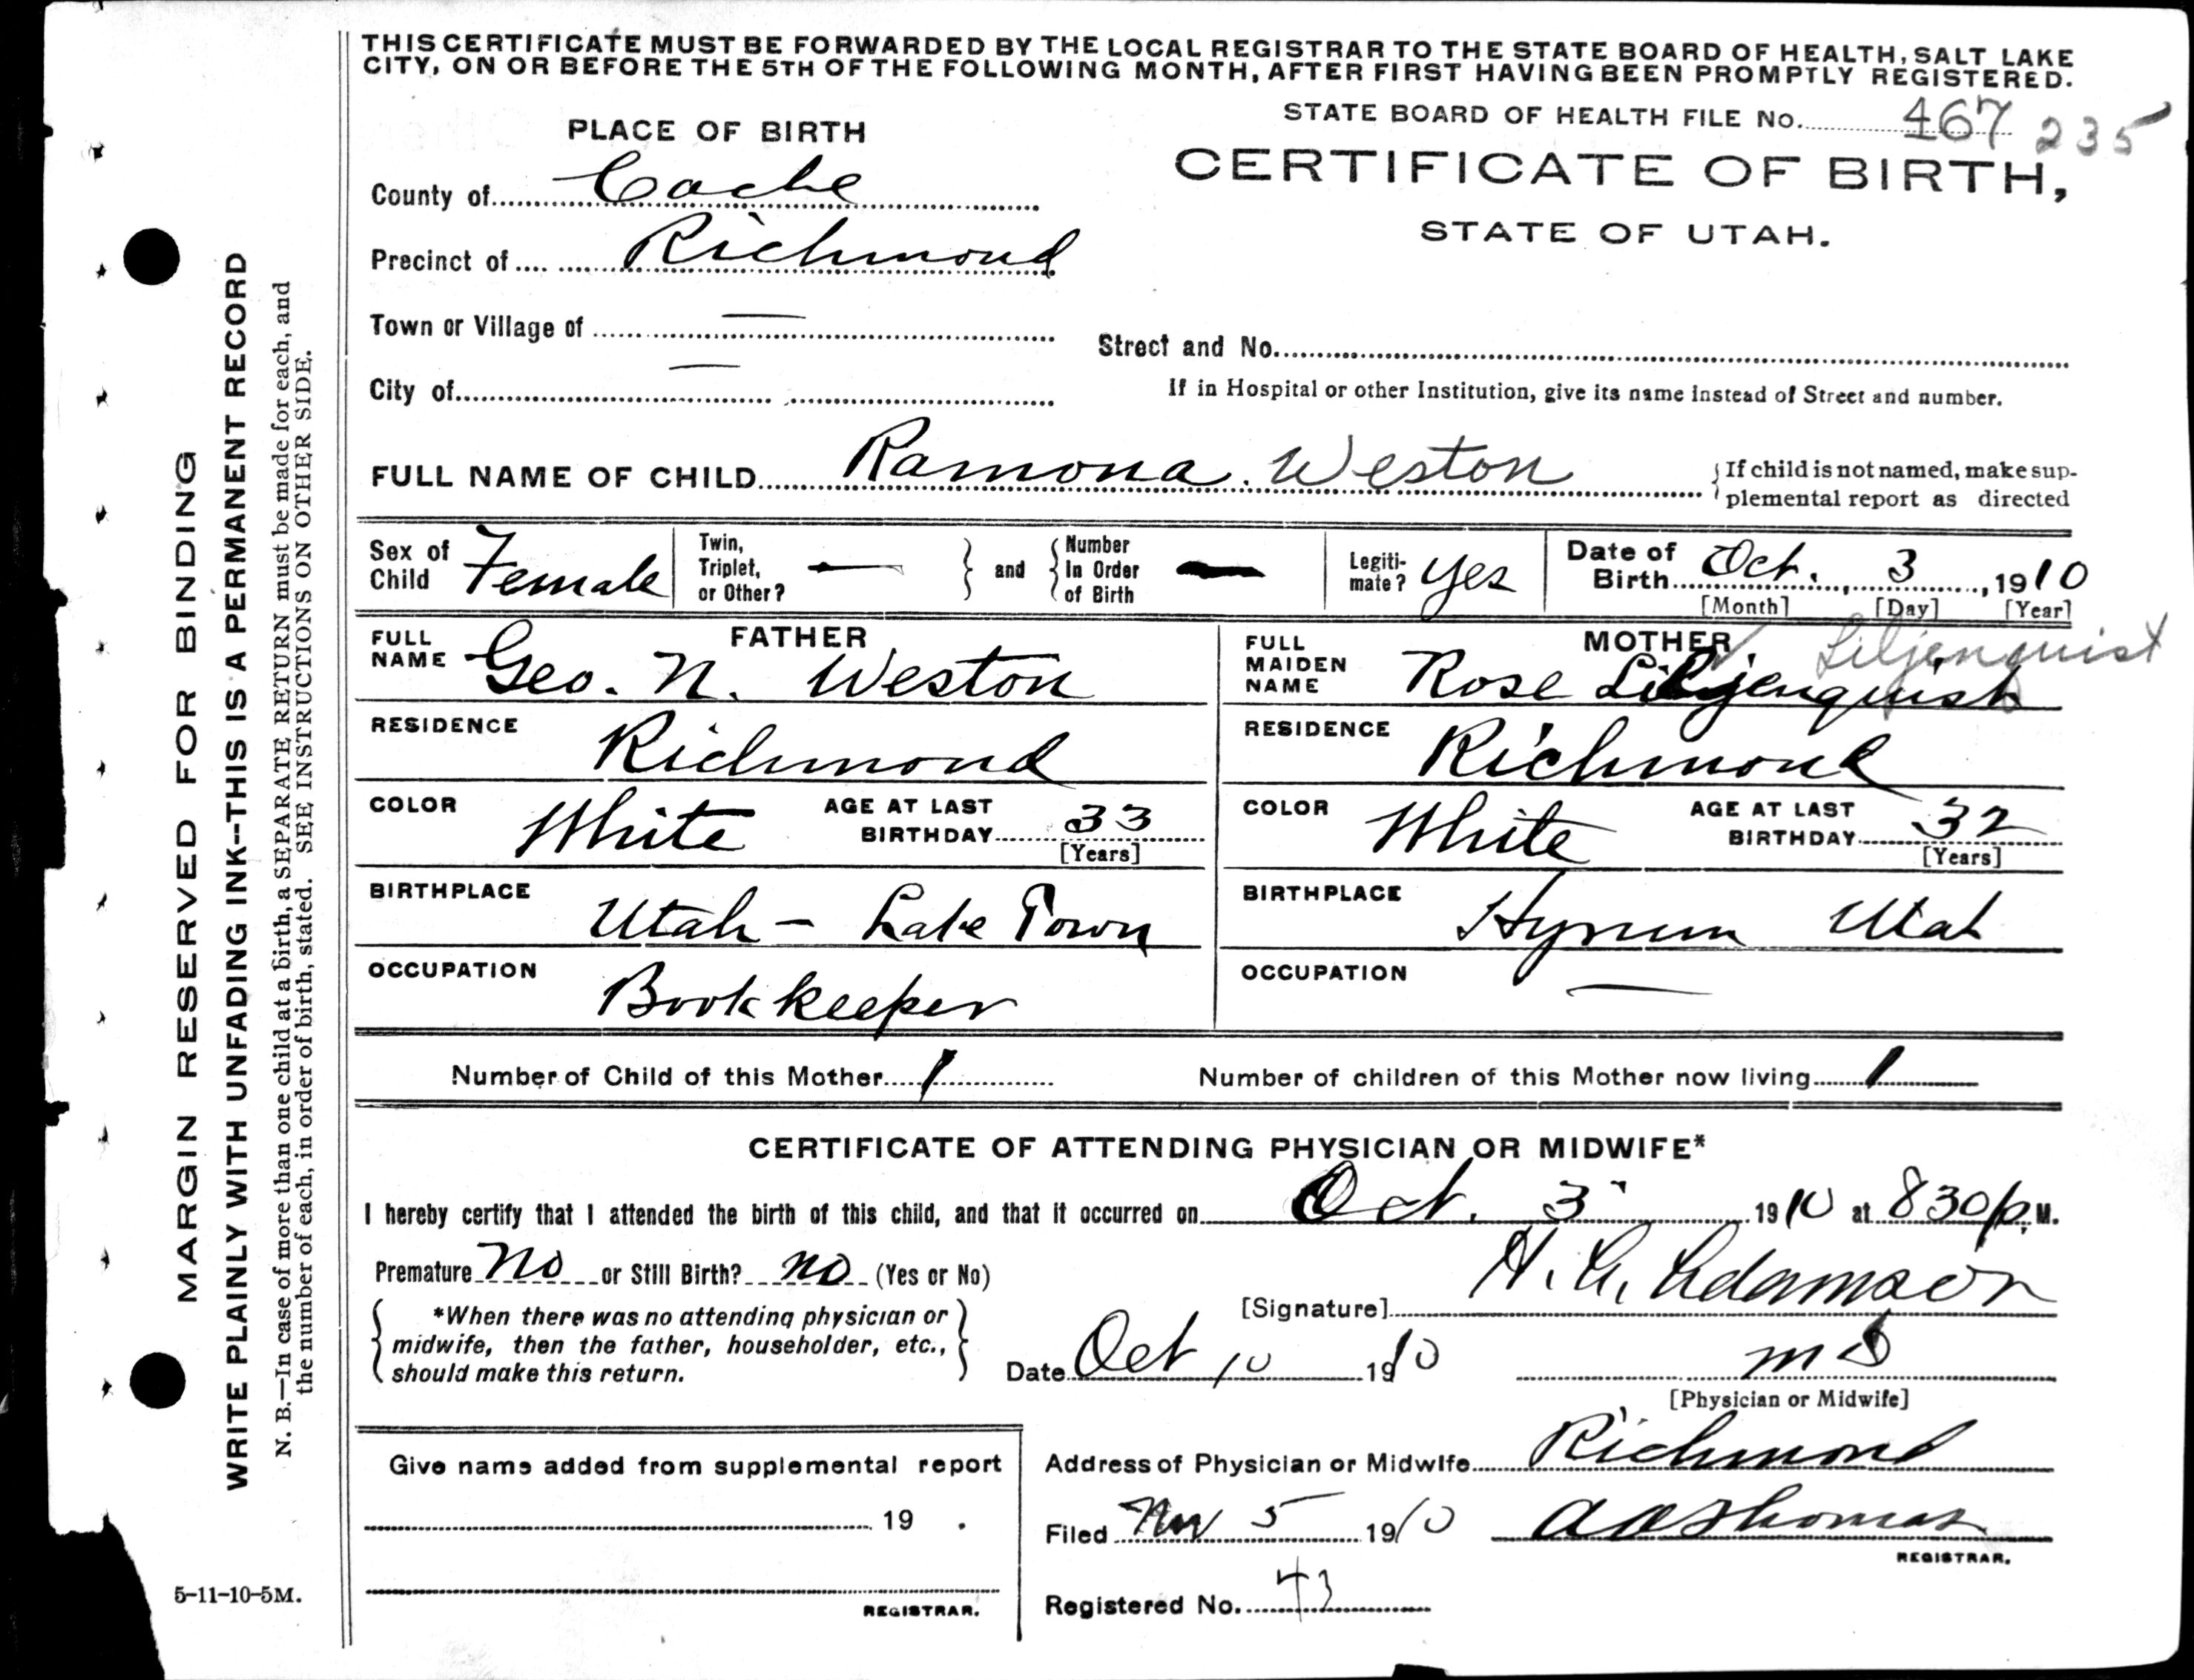 THIS CERTIFICATE MUST BE FORWARDED BY THE LOCAL REGISTRAR TO THE STATE BOARD OF HEALTH, SALT LAKE
CITY, ON OR BEFORE THE 5TH OF THE FOLLOWING MONTH, AFTER FIRST HAVING BEEN PROMPTLY REGISTERED.
STATE BOARD OF HEALTH FILE No. 467 235
PLACE OF BIRTH
CERTIFICATE OF BIRTH,
STATE OF UTAH.
County of Cache
Precinct of Richmond
Town or Village of —
Street and No.
City of —
If in Hospital or other Institution, give its name instead of Street and number.
FULL NAME OF CHILD Ramona. Weston
If child is not named, make sup-
plemental report as directed
Sex of Child Female
Twin, Triplet, or Other? —
and
Number In Order of Birth —
Legiti-mate? yes
Date of Birth Oct. 3, 1910
[Month] [Day] [Year]
FATHER
FULL NAME Geo. N. Weston
MOTHER Liljenquist
FULL MAIDEN NAME Rose Liljenquist
RESIDENCE Richmond
RESIDENCE Richmond
COLOR White AGE AT LAST BIRTHDAY 33 [Years]
COLOR White AGE AT LAST BIRTHDAY 32 [Years]
BIRTHPLACE Utah - Lake Town
BIRTHPLACE Hyrum Utah
OCCUPATION Bookkeeper
OCCUPATION —
Number of Child of this Mother 1
Number of children of this Mother now living 1
CERTIFICATE OF ATTENDING PHYSICIAN OR MIDWIFE*
I hereby certify that I attended the birth of this child, and that it occurred on Oct. 3" 1910 at 830 p. M.
Premature No or Still Birth? no (Yes or No)
[Signature] Adamson
*When there was no attending physician or
midwife, then the father, householder, etc.,
should make this return.
Date Oct 10 1910
MD
[Physician or Midwife]
Give name added from supplemental report
19 .
REGISTRAR.
Address of Physician or Midwife Richmond
Filed Nov 5 1910 Thomas
REGISTRAR.
Registered No. 43
MARGIN RESERVED FOR BINDING
WRITE PLAINLY WITH UNFADING INK--THIS IS A PERMANENT RECORD
N. B.—In case of more than one child at a birth, a SEPARATE RETURN must be made for each, and
the number of each, in order of birth, stated. SEE INSTRUCTIONS ON OTHER SIDE.
5-11-10-5M.